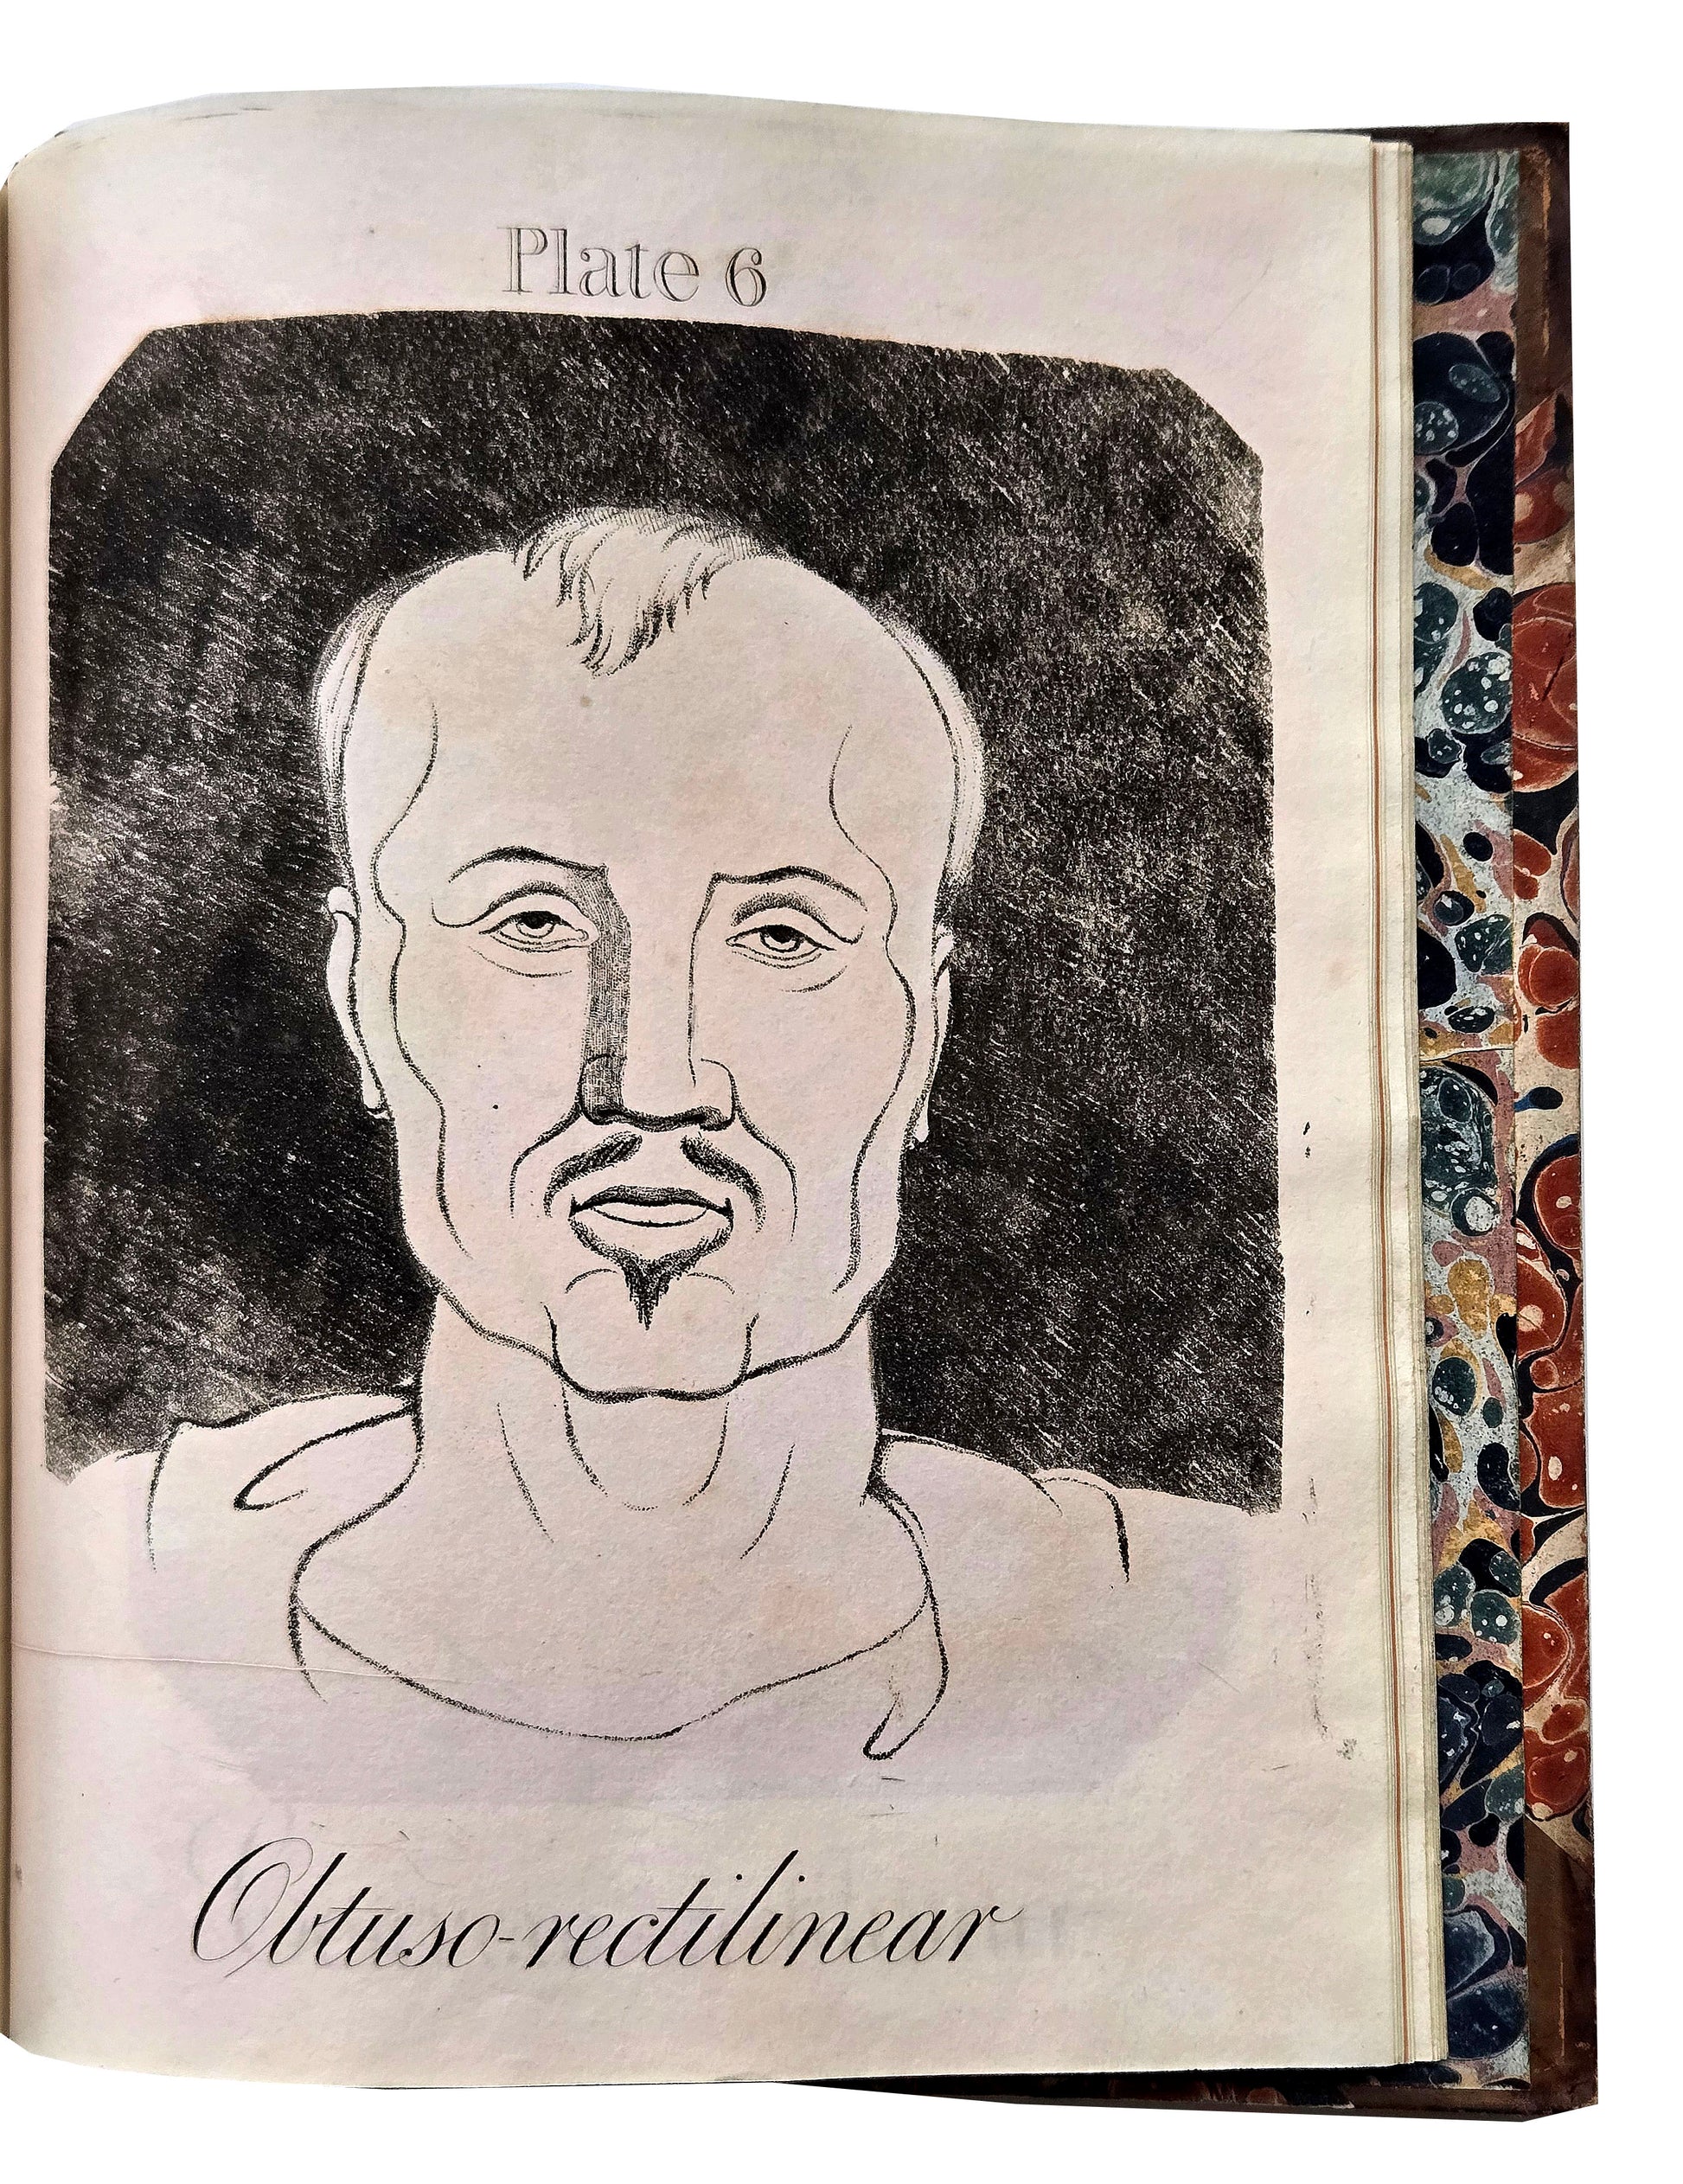 Plate 6
Obtuso-rectilinear